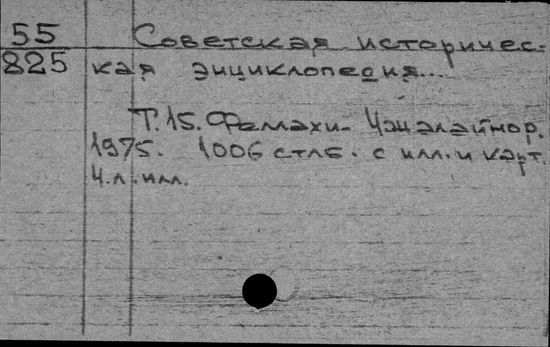 55 Советская историчес-
825 кая энциклопедия...
Т. 15. Феллахи- Чжалайнор.
1975. 1006 стлб. с илл. и карт.
4 л. илл.